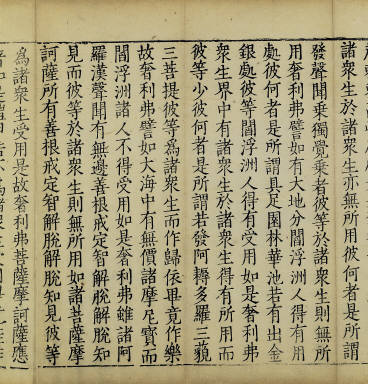 諸衆生於諸衆生亦無所用彼何者是所謂
發聲聞乘獨覺乘者彼等於諸衆生則無所
用奢利弗譬如有大地分閻浮洲人得有用
處彼何者是所謂具足園林華池若有出金
銀處彼等閻浮洲人得有受用如是奢利弗
衆生界中有諸衆生於諸衆生得有所用而
彼等少彼何者是所謂若發阿耨多羅三藐
三菩提彼等為諸衆生而作歸依畢竟作樂
故奢利弗譬如大海中有無價諸摩尼寶而
閻浮洲諸人不得受用如是奢利弗雖諸阿
羅漢聲聞有無邊善根戒定智解脫解脫知
見而彼等於諸衆生則無所用如諸菩薩摩
訶薩所有善根戒定智解脫解脫知見彼等
為諸衆生受用是故奢利弗菩薩摩訶薩應